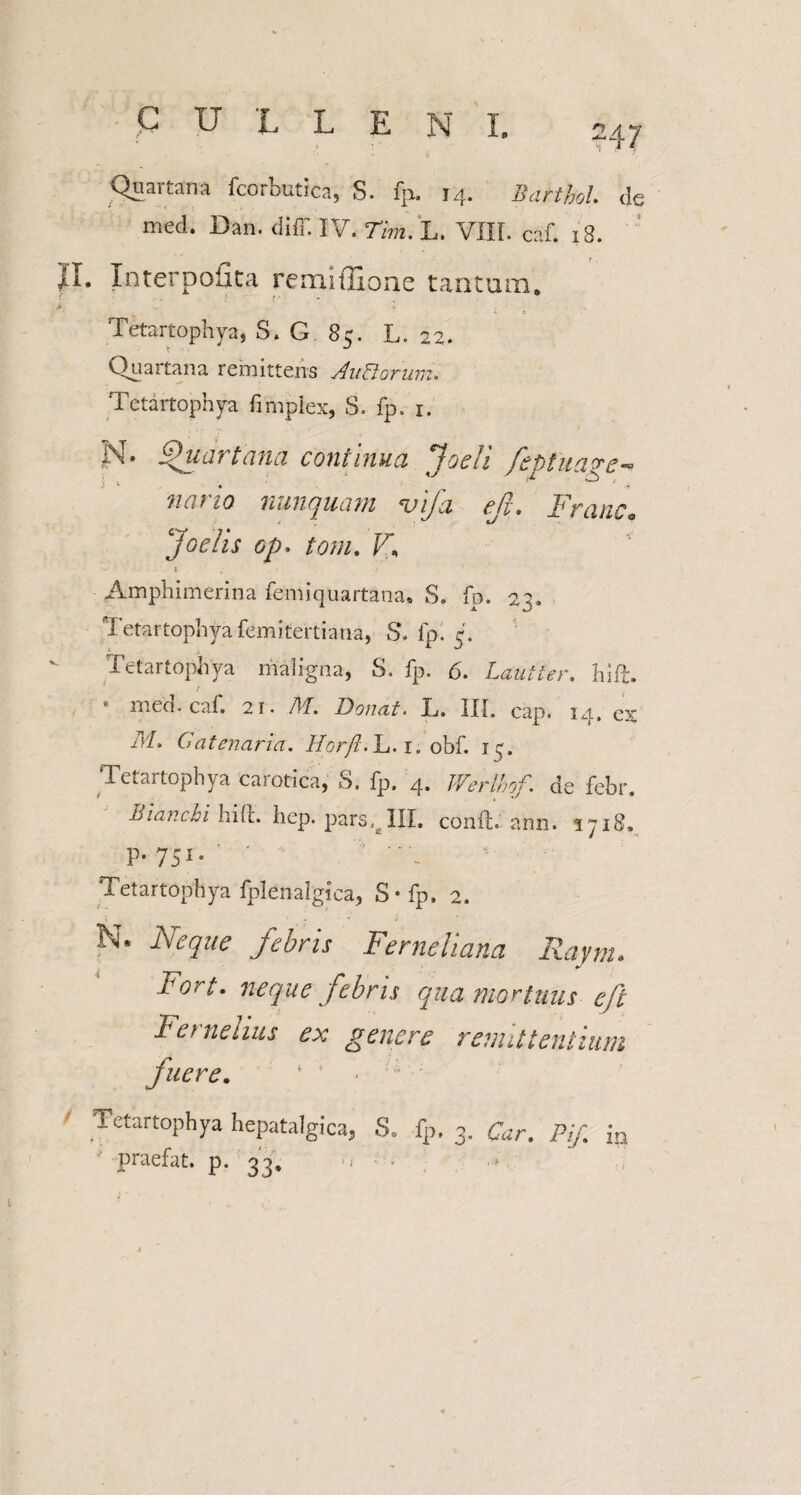 CULLENI. 247
Quartana ſcorbutica, S. ſp. 14. Barthol. de
med. Dan. diſſ. IV. Tim. L. VIII. caſ. 18.
II. Interpoſita remiſſione tantum.
Tetartophya, S. G. 85. L. 22.
Quartana remittens Auctorum.
Tetartophya ſimplex, S. ſp. 1.
N. Quartana continua Joeli ſeptuage-
nario nunquam viſa eſt. Franc.
Joelis op. tom. V.
Amphimerina ſemiquartana, S. ſp. 23.
Tetartophya ſemitertiana, S. ſp. 5.
Tetartophya maligna, S. ſp. 6. Lautter. hiſt.
med. caſ. 21. M. Donat. L. III. cap. 14. ex
M. Gatenaria. Horſt. L. 1. obſ. 15.
Tetartophya carotica, S. ſp. 4. Werlhof. de febr.
Bianchi hiſt. hep. pars. III. conſt. ann. 1718.
p. 751.
Tetartophya ſplenalgica, S. ſp. 2.
N. Neque febris Ferneliana Raym.
Fort. neque febris qua mortuus eſt
Fernelius ex genere remittentium
fuere.
Tetartophya hepatalgica, S. ſp. 3. Car. Piſ. in
praefat. p. 33.